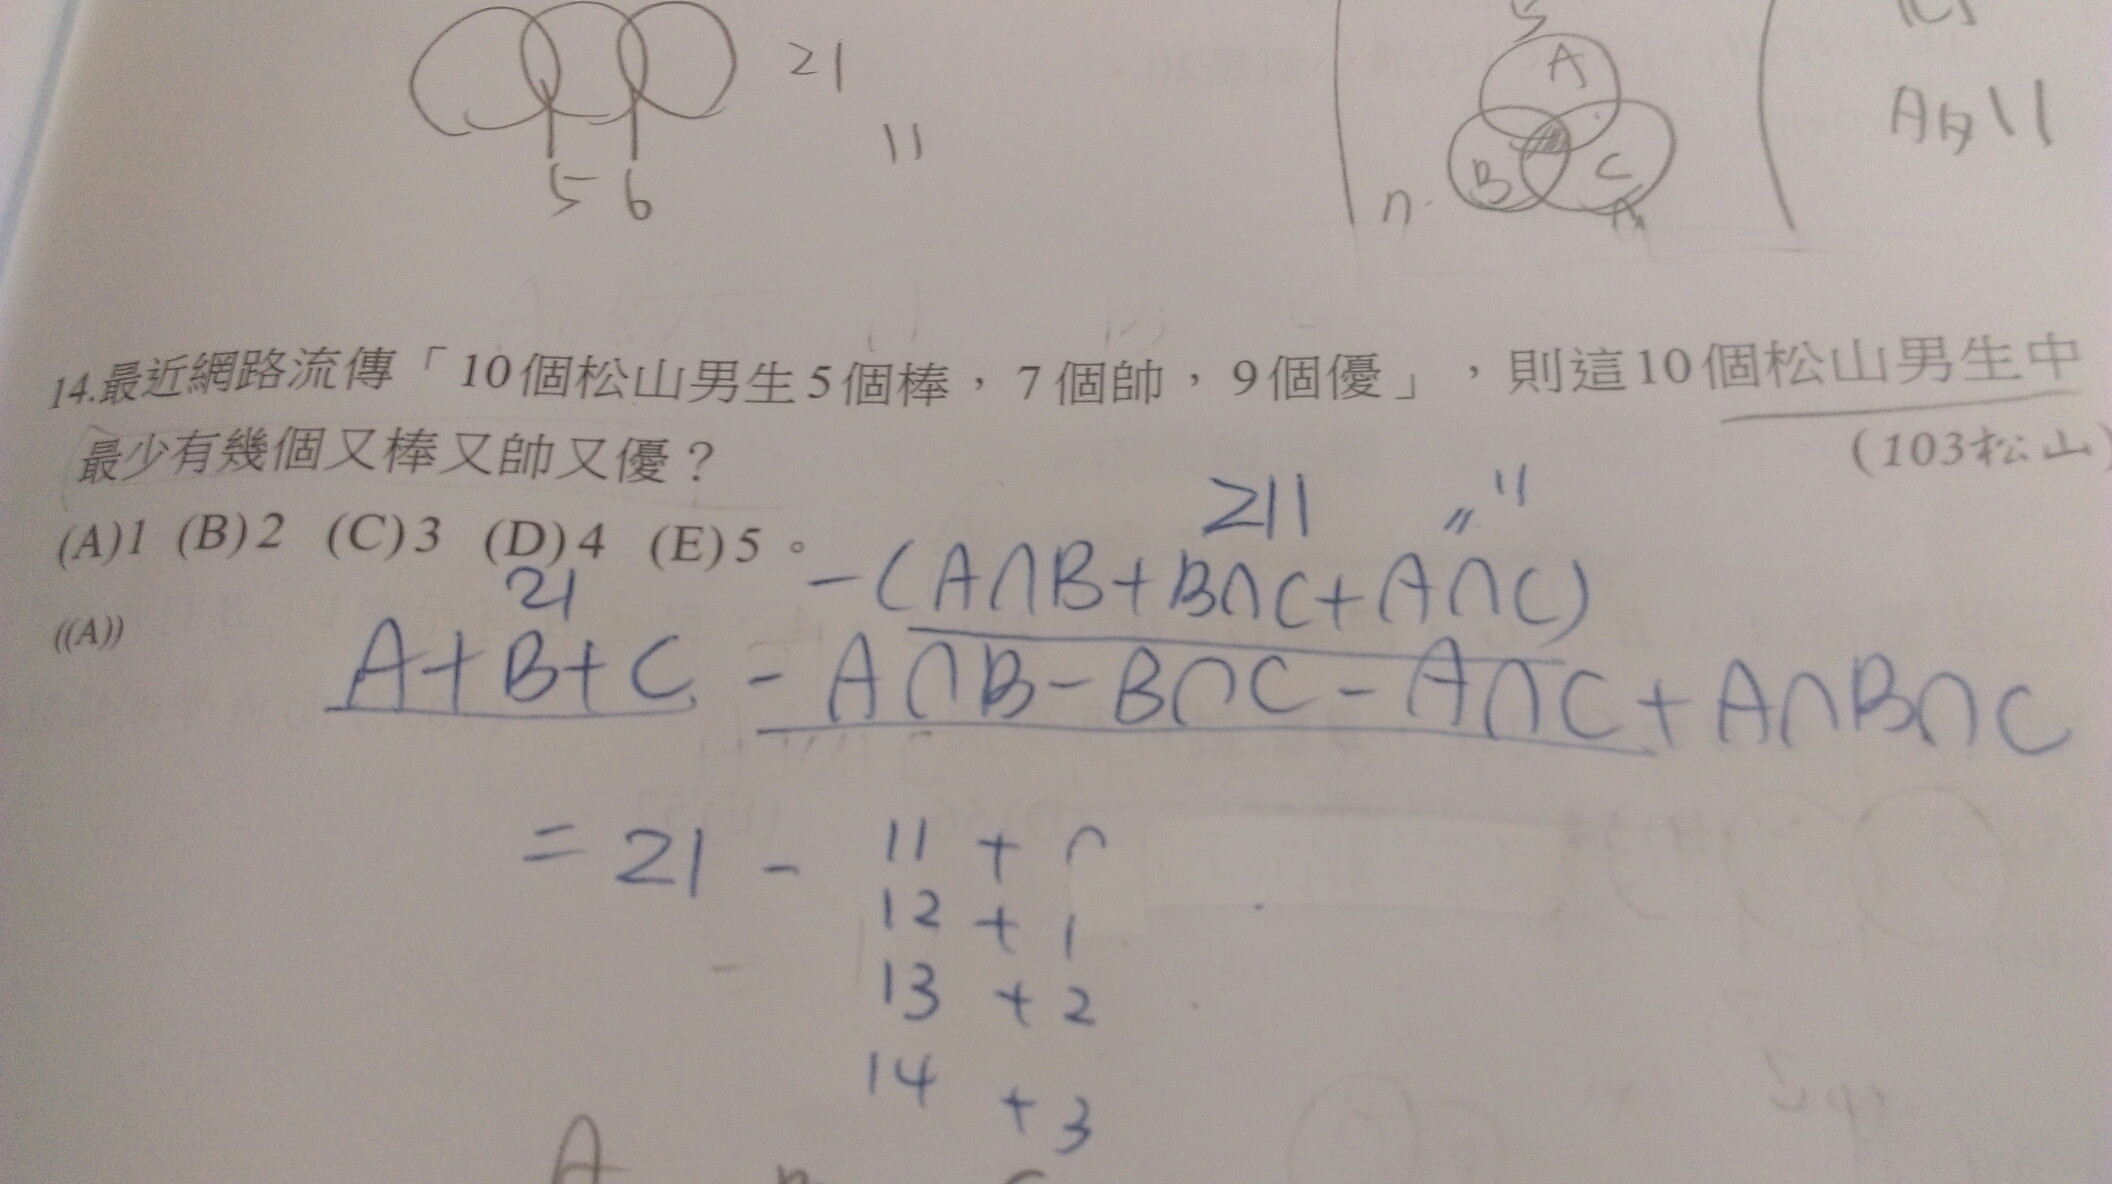 5
A
21
A的11
11
B
C
n
5 6
14.最近網路流傳「10個松山男生5個棒,7個帥,9個優」,則這10個松山男生中
最少有幾個又棒又帥又優?
(103松山)
(A)1 (B)2 (C)3 (D)4 (E)5。
((A))
21
≥11
11
-(A∩B+B∩C+A∩C)
A+B+C - A∩B-B∩C-A∩C+A∩B∩C
= 21 - 11 + 0
12 + 1
13 + 2
14 + 3
A